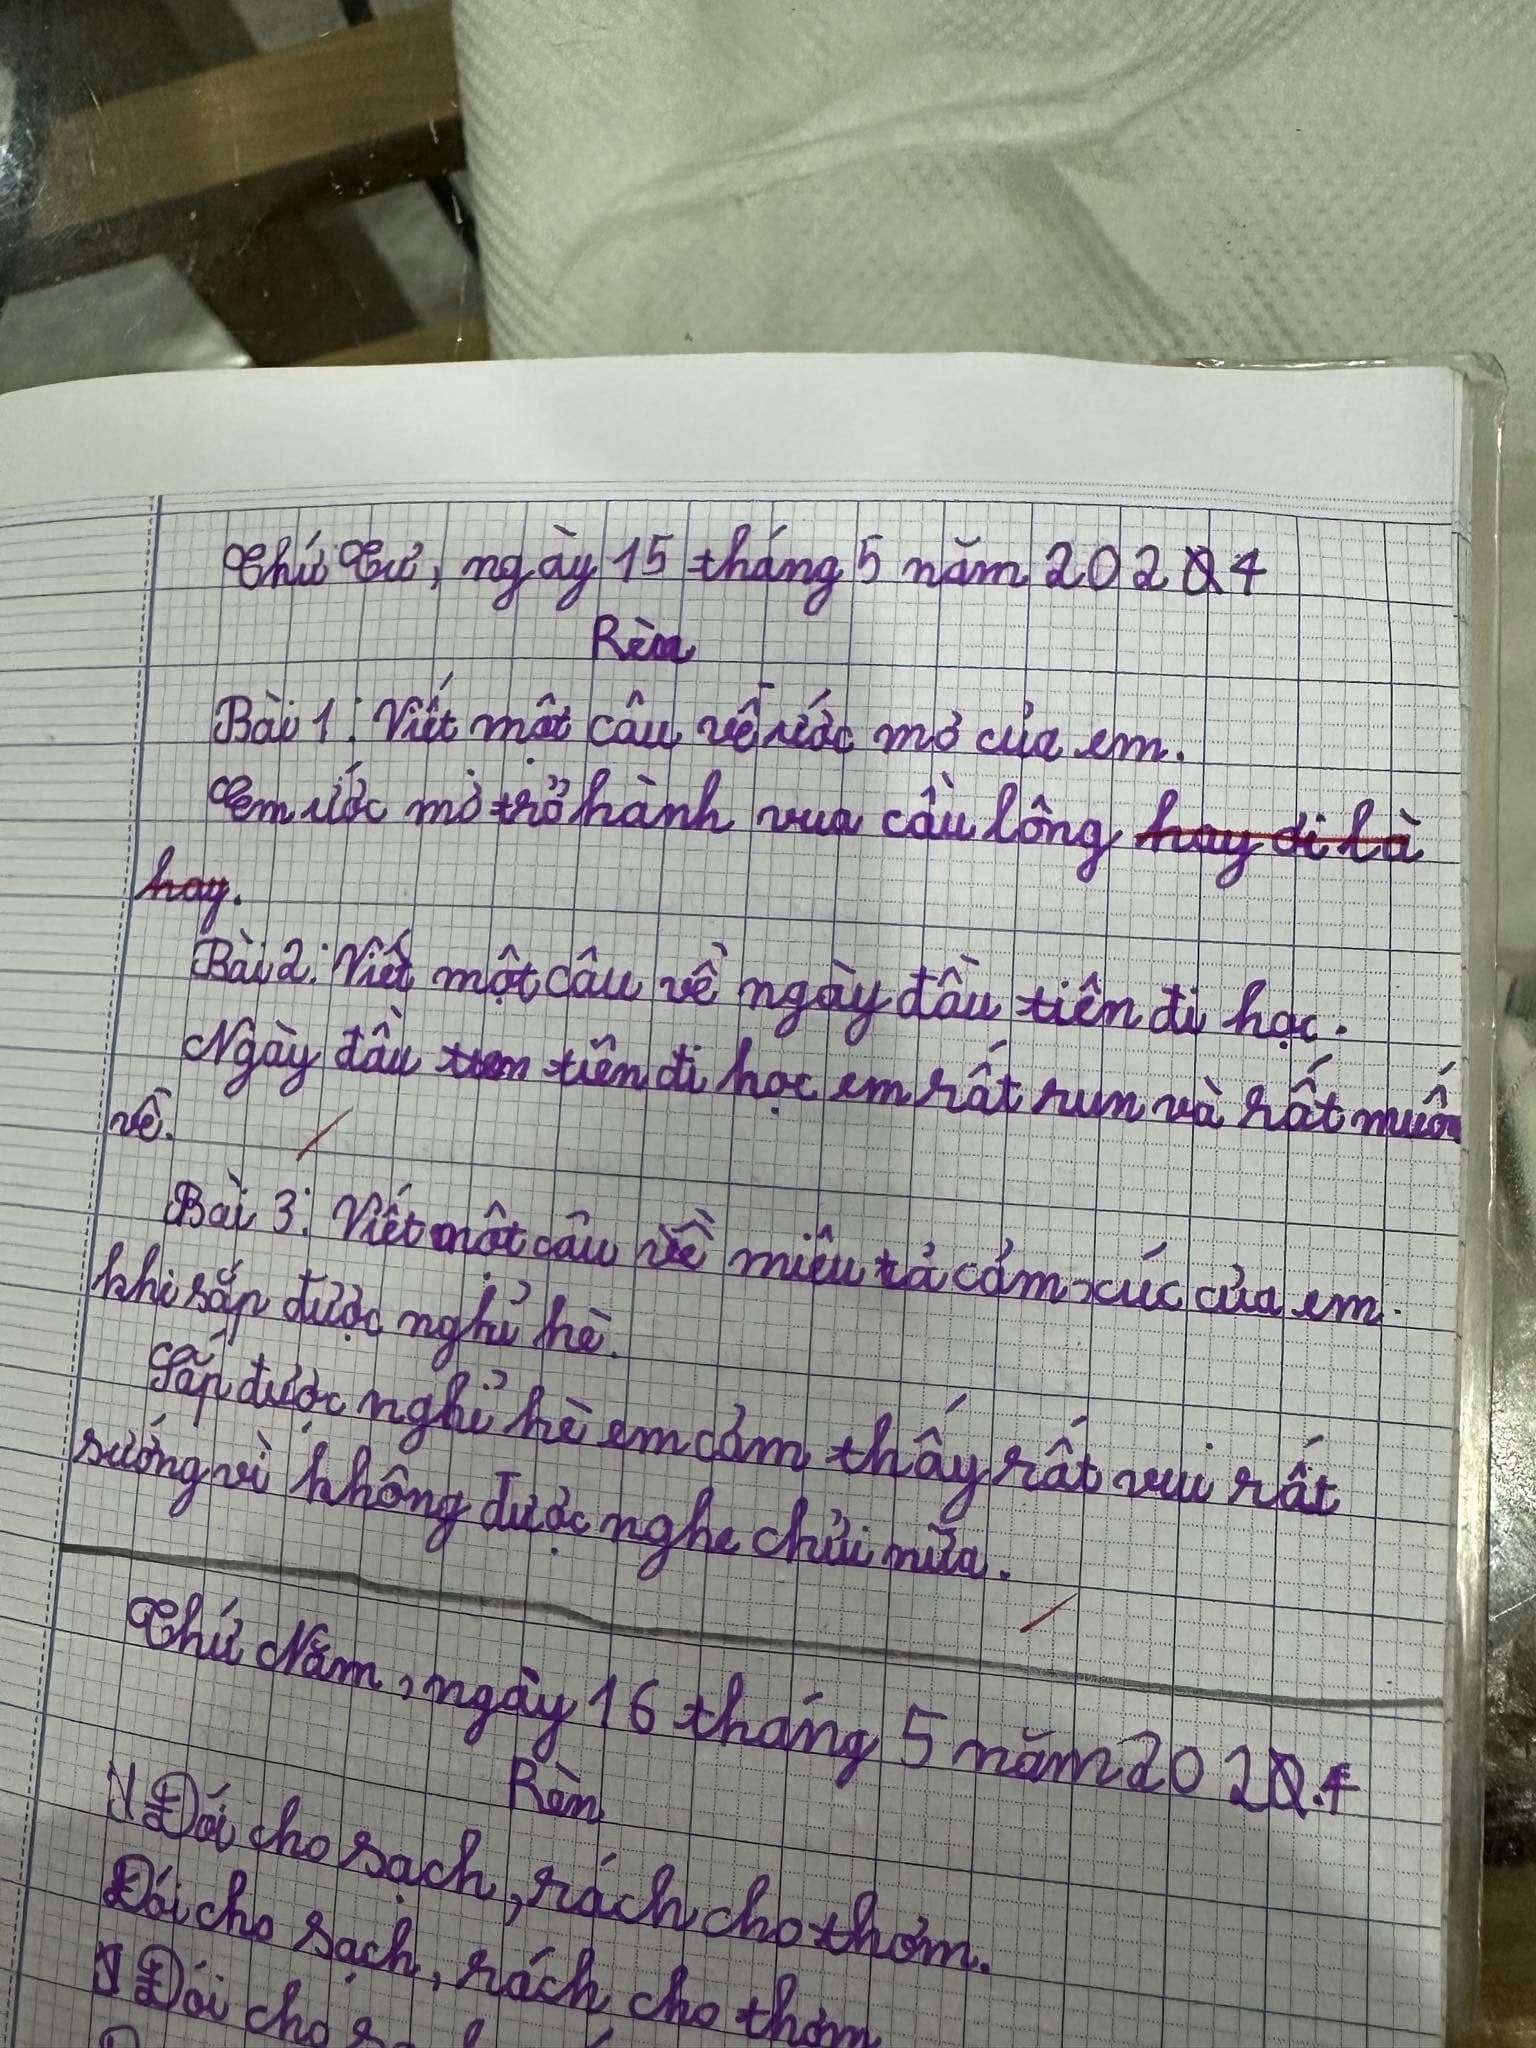 Thứ Tư, ngày 15 tháng 5 năm 2024
Rèn
Bài 1: Viết một câu về ước mơ của em.
Em ước mơ trở hành vua cầu lông hay đi là
hay.
Bài 2: Viết một câu về ngày đầu tiên đi học.
Ngày đầu tiên đi học em rất run và rất muốn
về.
Bài 3: Viết một câu về miêu tả cảm xúc của em
khi sắp được nghỉ hè.
Sắp được nghỉ hè em cảm thấy rất vui rất
sướng vì không được nghe chửi nữa.
Thứ Năm, ngày 16 tháng 5 năm 2024
Rèn
Đói cho sạch, rách cho thơm.
Đói cho sạch, rách cho thơm
Đói cho